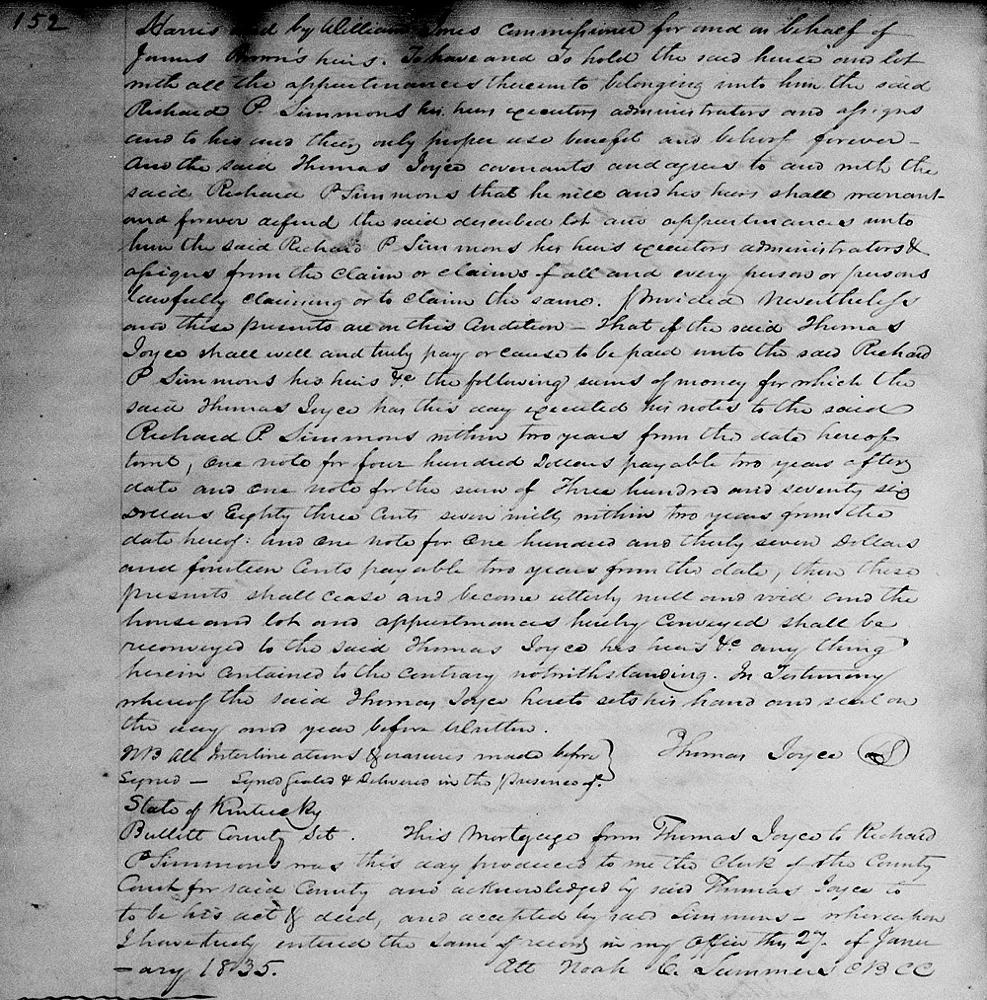 152
Harris and by William Jones commissioner for and on behalf of
James Brown's heirs. To have and to hold the said house and lot
with all the appurtenances thereunto belonging unto him the said
Richard P. Simmons his heirs executors administrators and assigns
and to his and their only proper use benefit and behoof forever –
And the said Thomas Joyce covenants and agrees to and with the
said Richard P Simmons that he will and his heirs shall warrant
and forever defend the said described lot and appurtenances unto
him the said Richard P Simmons his heirs executors administrators &
assigns from the claim or claims of all and every person or persons
lawfully claiming or to claim the same. Provided Nevertheless
and these presents are on this Condition – That if the said Thomas
Joyce shall well and truly pay or cause to be paid unto the said Richard
P Simmons his heirs &c the following sums of money for which the
said Thomas Joyce has this day executed his notes to the said
Richard P. Simmons within two years from the date hereof
towit, One note for four hundred Dollars payable two years after
date and one note for the sum of Three hundred and seventy six
Dollars Eighty three Cents seven mills within two years from the
date hereof: And one note for One hundred and thirty seven Dollars
and fourteen Cents payable two years from the date, then these
presents shall cease and become utterly null and void and the
house and lot and appurtenances hereby Conveyed shall be
reconveyed to the said Thomas Joyce his heirs &c any thing
herein contained to the contrary notwithstanding. In Testimony
whereof the said Thomas Joyce hereto sets his hand and seal on
the day and year before written.
NB All Interlineations & erasures made before } Thomas Joyce
Signed – Signed Sealed & Delivered in the presence of.
State of Kentucky
Bullitt County Sct. This Mortgage from Thomas Joyce to Richard
P Simmons was this day produced to me the Clerk of the County
Court for said County and acknowledged by said Thomas Joyce to
to be his act & deed, and accepted by said Simmons – whereupon
I have truly entered the same of record in my office this 27. of Janu
–ary 1835. Att Noah C. Summers C B C C